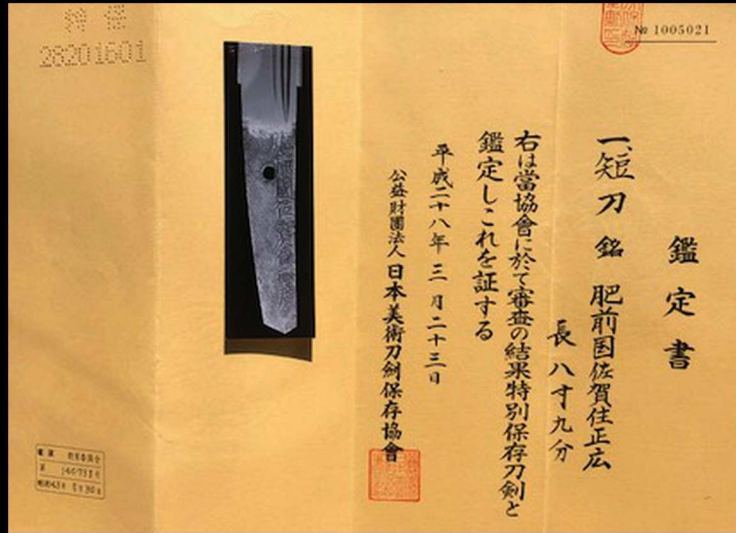 № 1005021
鑑定書
一、短刀 銘 肥前国佐賀住正広
長 八寸九分
右は當協會に於て審査の結果特別保存刀剣と
鑑定しこれを証する
平成二十八年三月二十三日
公益財團法人 日本美術刀剣保存協會
28201601